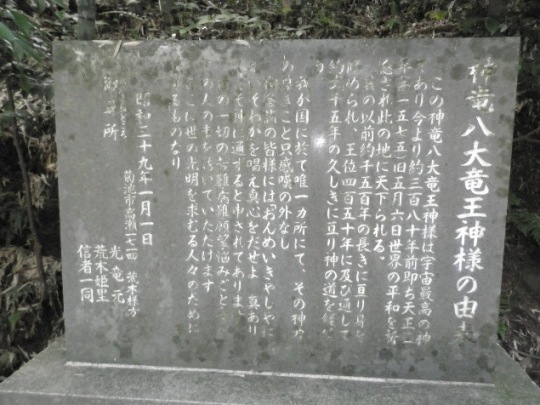 神竜八大竜王神様の由来
この神竜八大竜王神様は宇宙最高の神
であり今より約三百八十年前即ち天正三
年(一五七五)旧五月六日世界の平和を
念され此の地に天下られる。
以前約千五百年の長きに亘り身を
められ、王位四百五十年に及び通して
十五年の久しきに亘り神の道を
我が国に於て唯一カ所にて、その神
こと只感嘆の外なし
の皆様には「おんめいきゃしゃに
そわかを唱え真心をだせよ 真あり
に通ずると申されてあります
の一切の難病難願望悩みごと
の人の幸を済いていただけます
に世の光明を求むる人々のために
るものなり
昭和二十九年一月一日
菊池市高瀬一七一四 荒木様方
光竜元
荒木姫里
信者一同